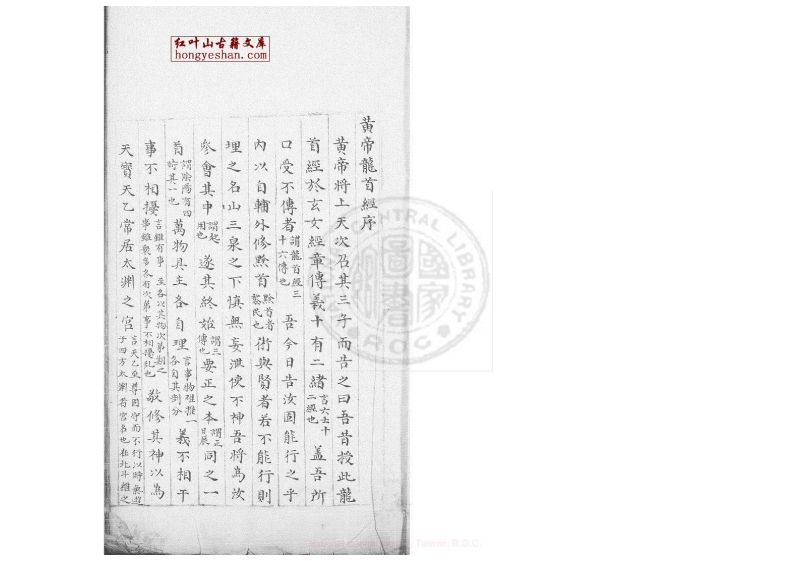 红叶山古籍文库
hongyeshan.com
黃帝龍首經序
黃帝將上天次召其三子而告之曰吾昔授此龍
首經於玄女經章傳義十有二緒言六壬十二經也蓋吾所
口受不傳者謂龍首經三十六傳也吾今日告汝固能行之乎
內以自輔外修黔首黔首者黎民也術與賢者若不能行則
埋之名山三泉之下慎無妄泄使不神吾將為汝
參會其中謂起用也遂其終始謂三傳也要正之本謂正日辰同之一
首謂陰陽首四時其一也萬物具主各自理言事物雖推一各自其剖分義不相干
事不相擾言雖有事至各以其物次第制之事雖衆多各有次第事不相擾亂也敬修其神以為
天寶天乙常居太淵之宮言天乙至尊固守而不行以時無遊于四方太淵者宮名也在北斗維之
CENTRAL LIBRARY
國家圖書館
R.O.C.